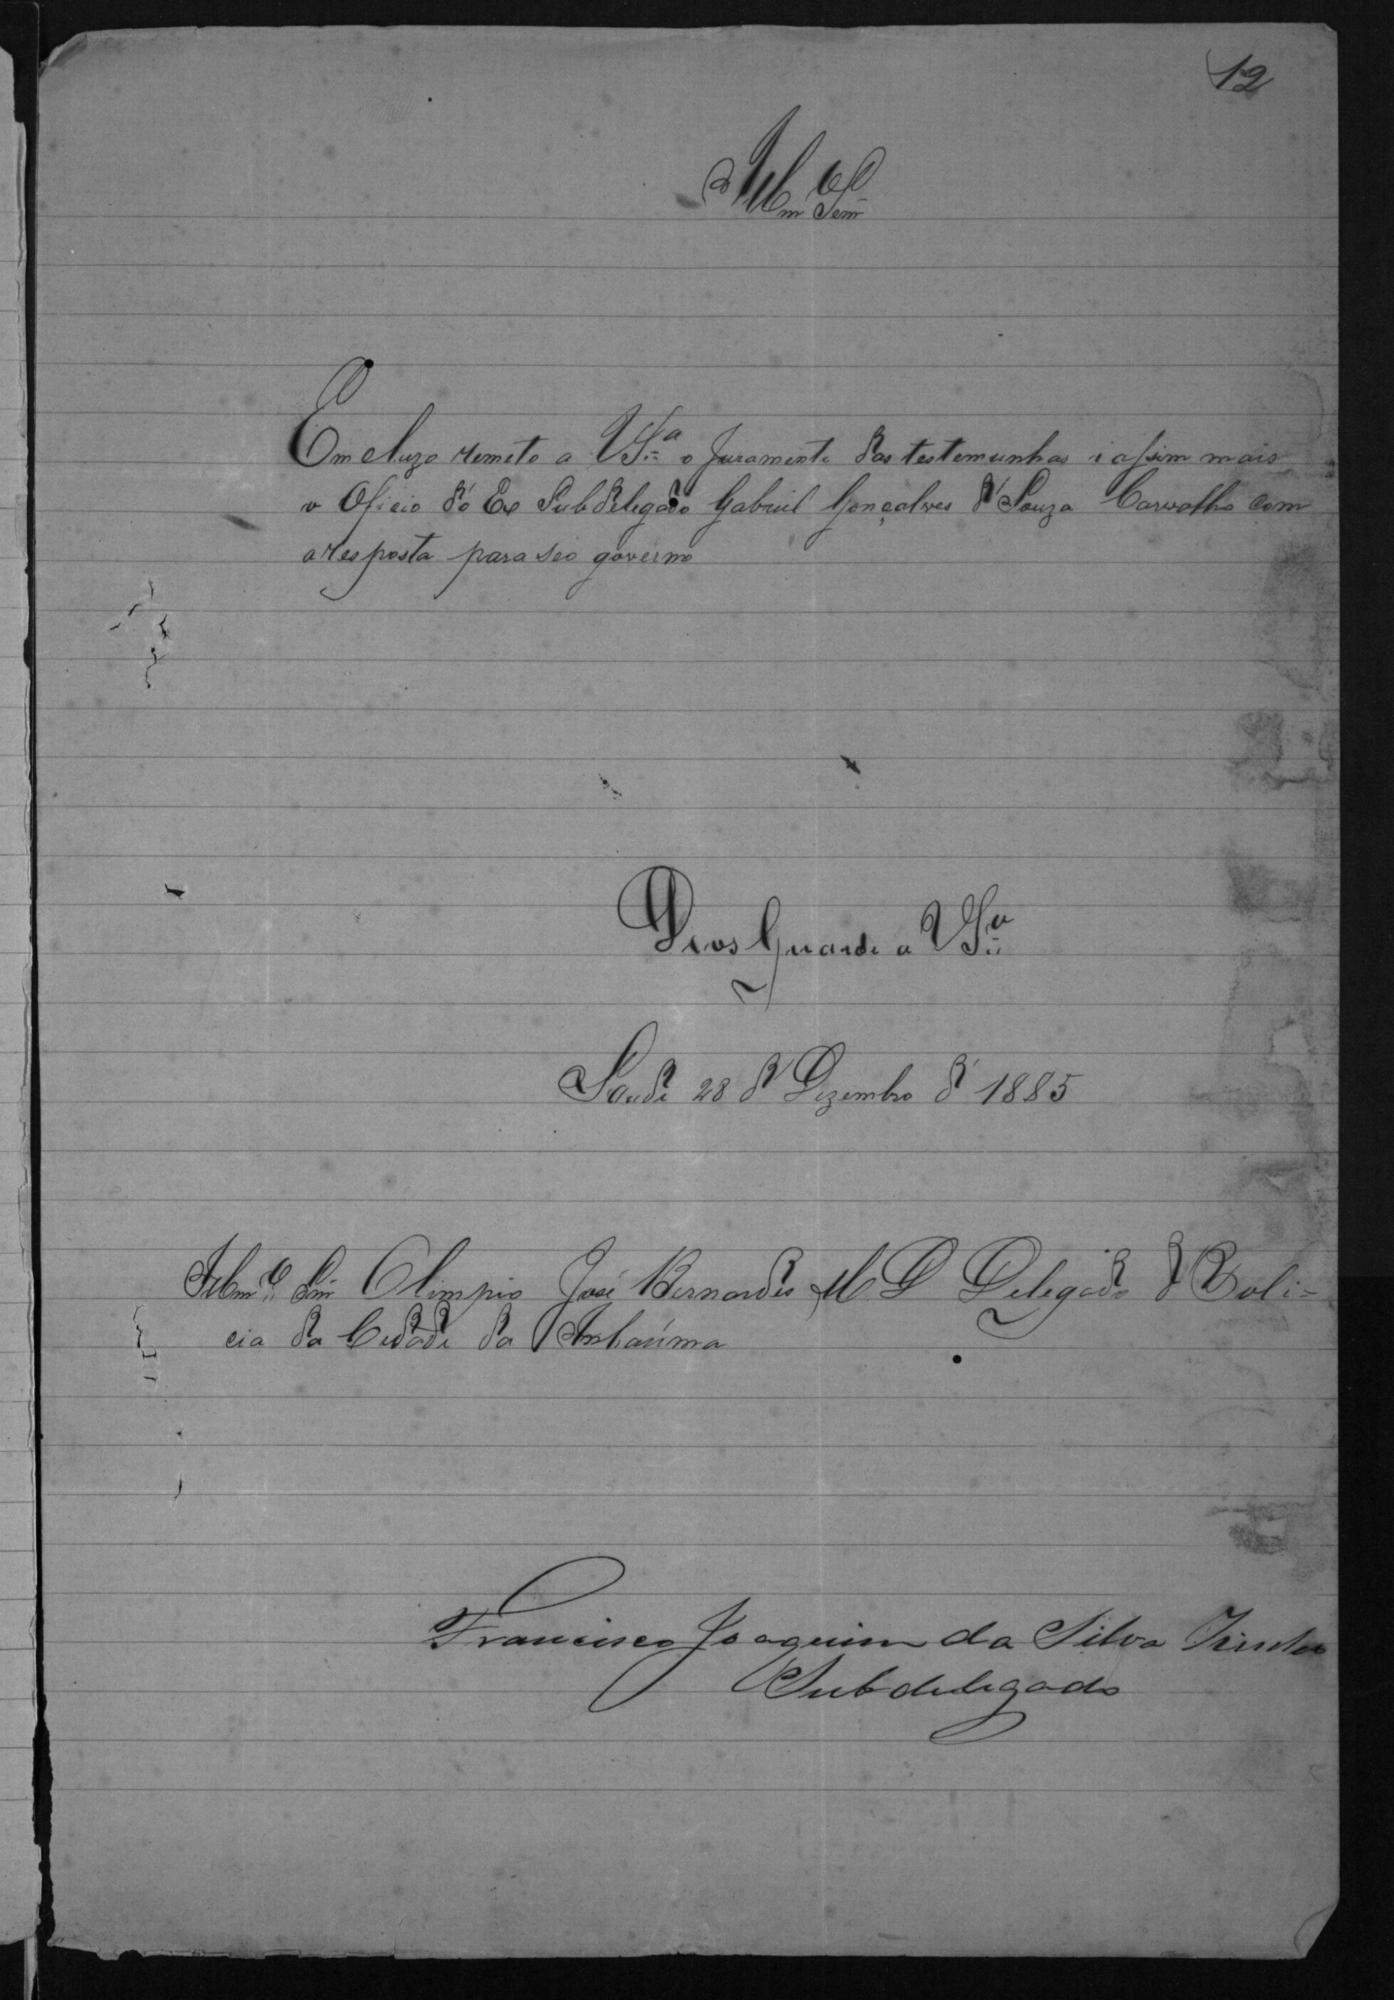 12
Illm Senr
Em cluzo remeto a VSª o Juramento das testemunhas i assim mais
o Oficio dó Ex Subdelegado Gabriel Gonçalves d' Souza Carvalho com
a resposta para seo governo
Deos Guarde a VSª
Saude 28 d' Dezembro d' 1885
Illmº Snr Olimpio José Bernardes M D Delegado d' Poli=
cia da Cidade da Inhaúma
Francisco Joaquim da Silva
Subdelegado